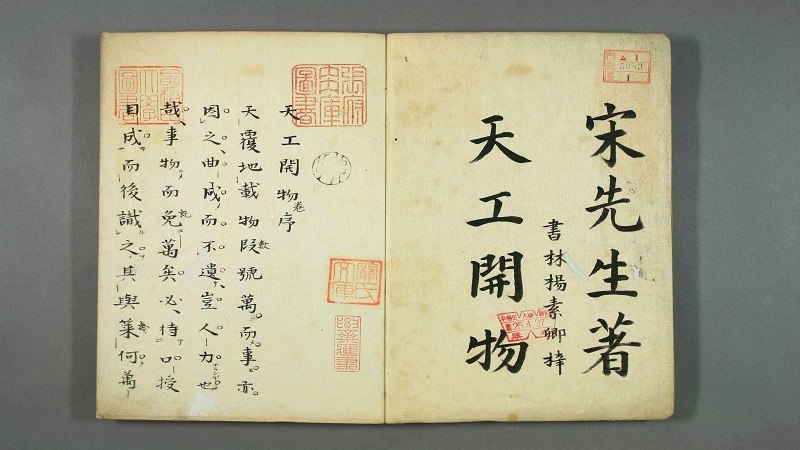 宋先生著
書林楊素卿梓
天工開物
5083
1
天工開物卷序
天覆地載物段號萬而事亦
因之曲成而不遺豈人力也
哉事物而免萬矣必待口授
目成而後識之其與何萬